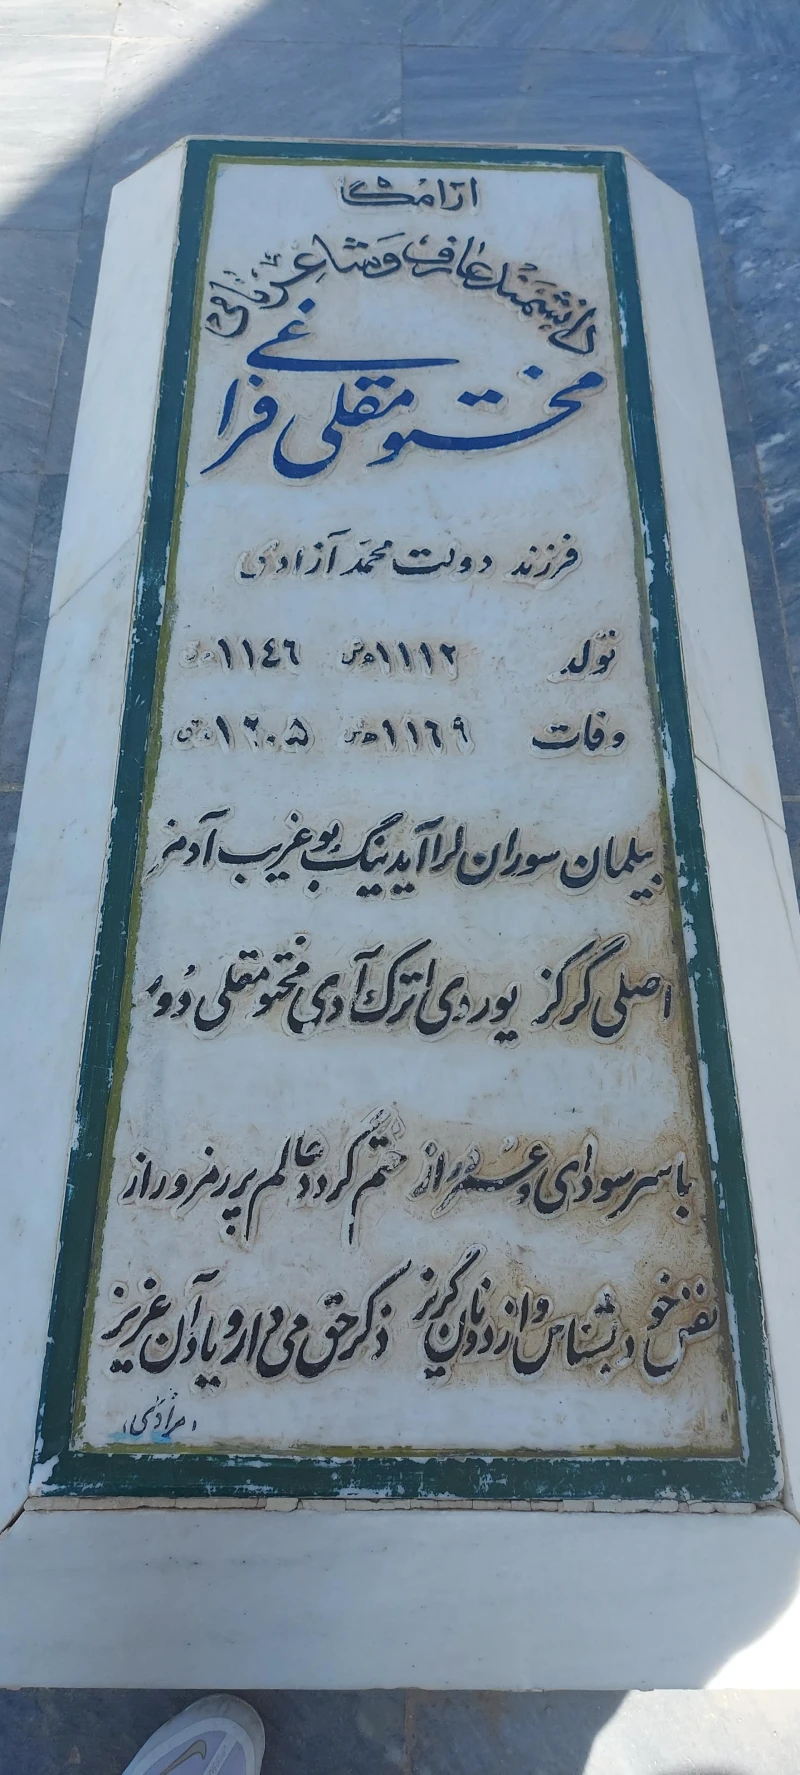 آرامگاه
دانشمند عارف و شاعر نامی
مختومقلی فراغی
فرزند دولت محمد آزادی
تولد ۱۱۱۲ ه‍ش ۱۱٤٦ ه‍ق
وفات ۱۱٦۹ ه‍ش ۱۲۰۵ ه‍ق
بیلمان سوران لرا آیدینگ بو غریب آدمز
اصلی گرکز یوردی اترک آدی مختومقلی دور
با سر سودای و عمر دراز ختم گردد عالم پر رمز و راز
نفس خود بشناس و از دونان گریز ذکر حق می دار و یاد آن عزیز
(مرادی)